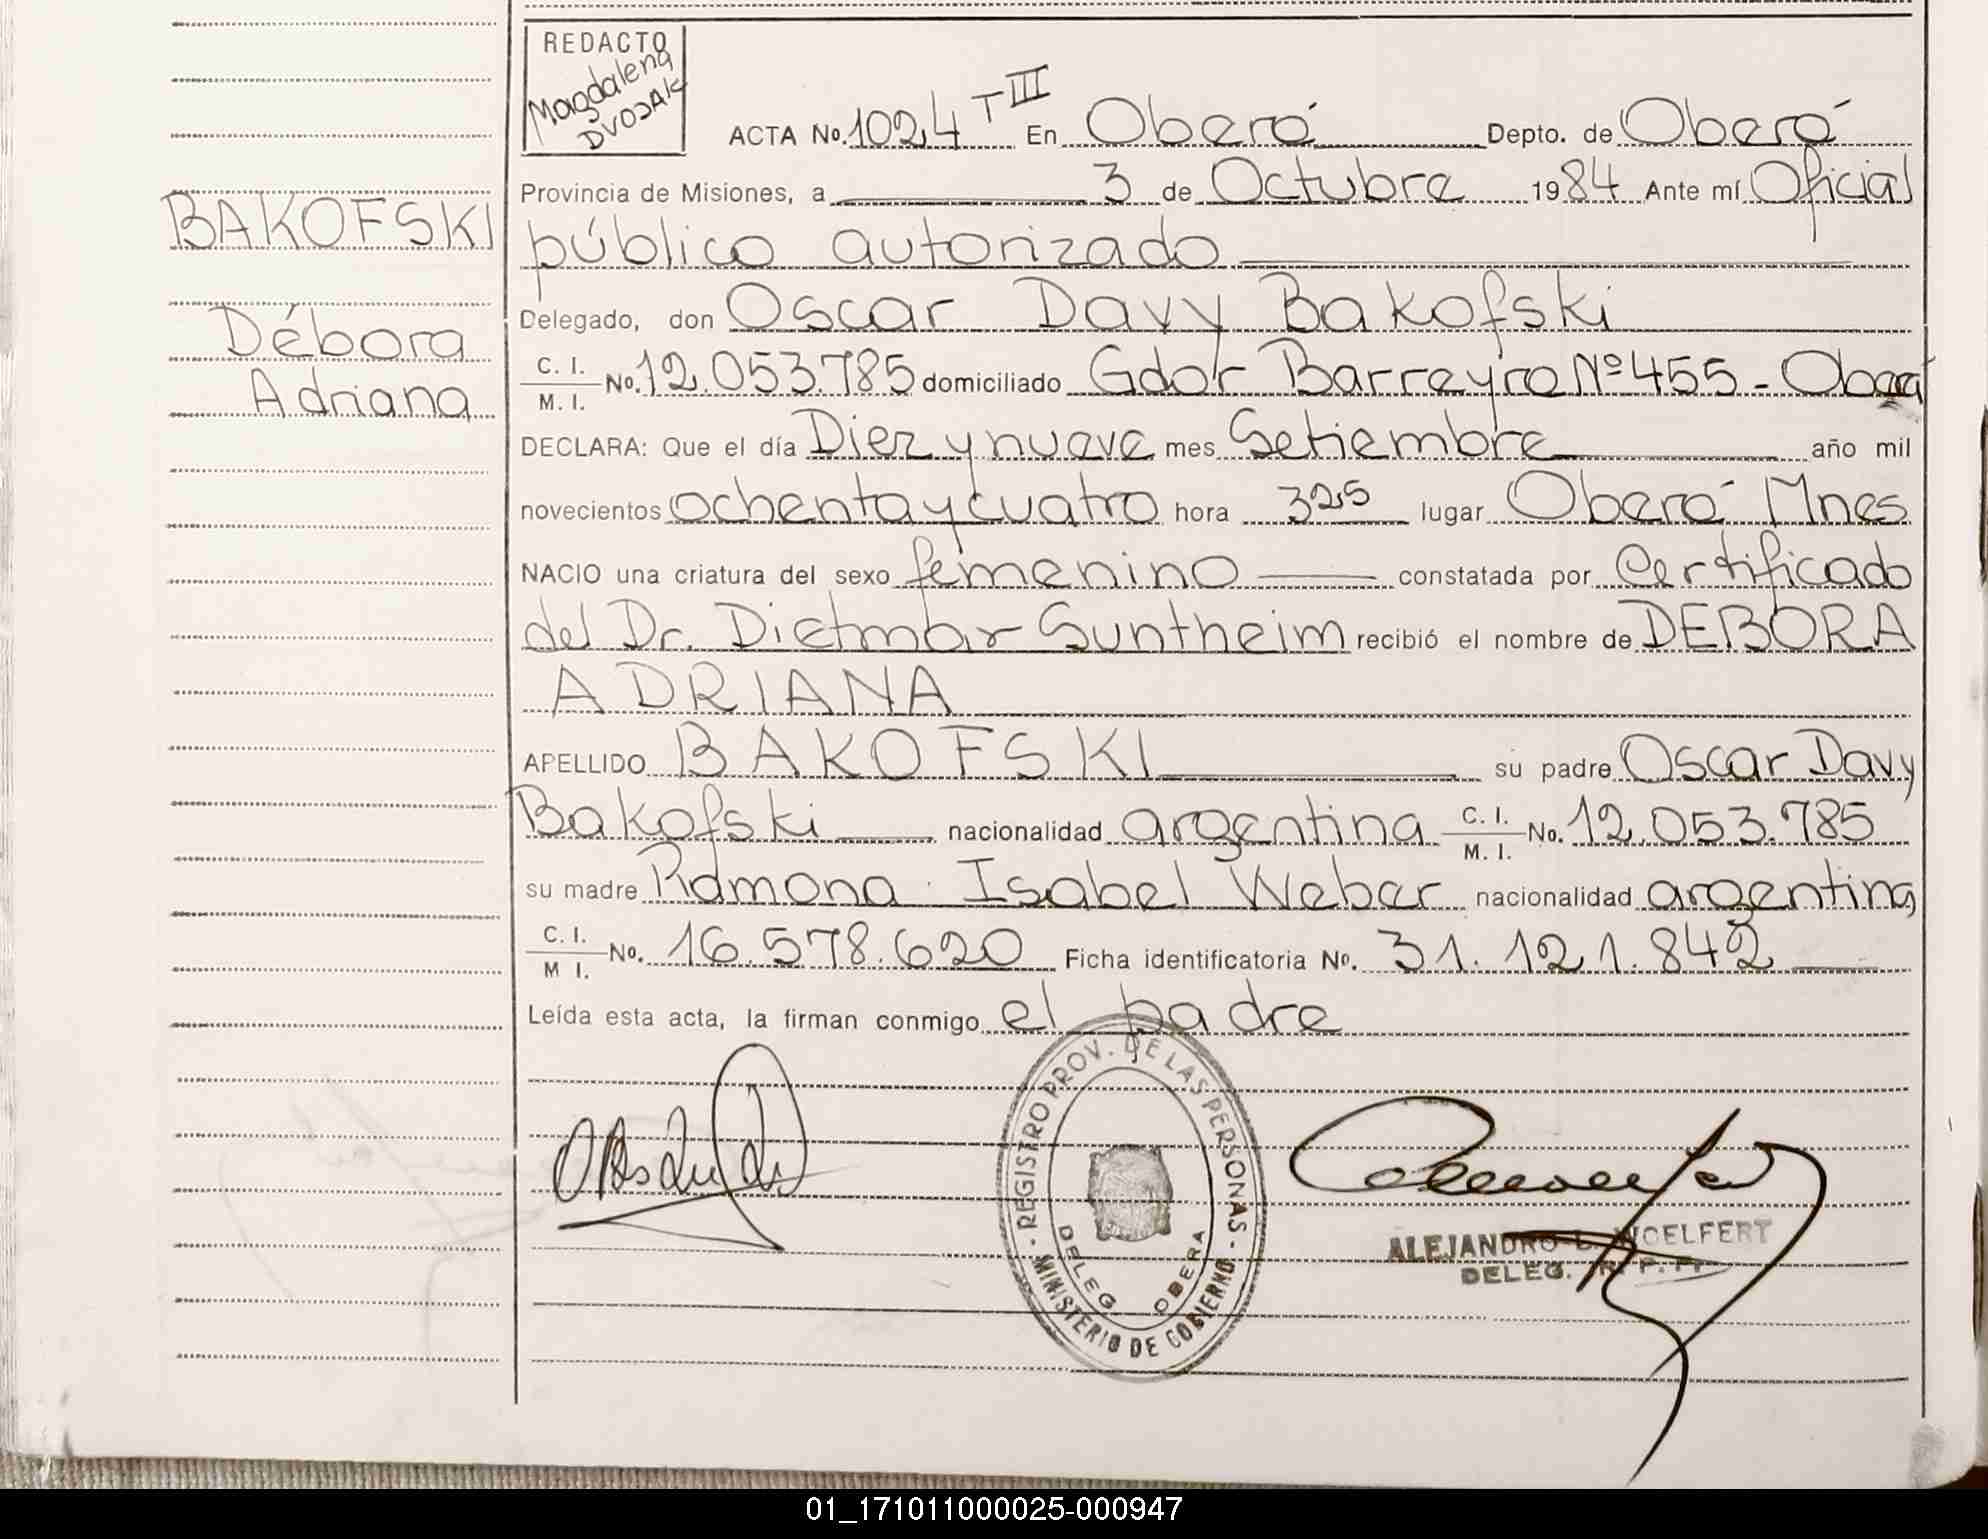 REDACTO
Magdalena
DVOJAK
ACTA No. 1024 T III En Oberá Depto. de Oberá
Provincia de Misiones, a 3 de Octubre 1984 Ante mí Oficial
público autorizado
BAKOFSKI
Delegado, don Oscar Davy Bakofski
Débora
C. I. M. I. No. 12.053.785 domiciliado Gdor Barreyro Nº 455 - Oberá
Adriana
DECLARA: Que el día Diez y nueve mes Setiembre año mil
novecientos ochenta y cuatro hora 325 lugar Oberá Mnes
NACIO una criatura del sexo femenino constatada por Certificado
del Dr. Dietmar Suntheim recibió el nombre de DEBORA
ADRIANA
APELLIDO BAKOFSKI su padre Oscar Davy
Bakofski nacionalidad argentina C. I. M. I. No. 12.053.785
su madre Ramona Isabel Weber nacionalidad argentina
C. I. M I. No. 16.578.620 Ficha identificatoria No. 31.121.842
Leída esta acta, la firman conmigo el padre
REGISTRO PROV. DE LAS PERSONAS - MINISTERIO DE GOBIERNO -
DELEG OBERA
ALEJANDRO WOELFERT
DELEG. R. P. P.
01_171011000025-000947